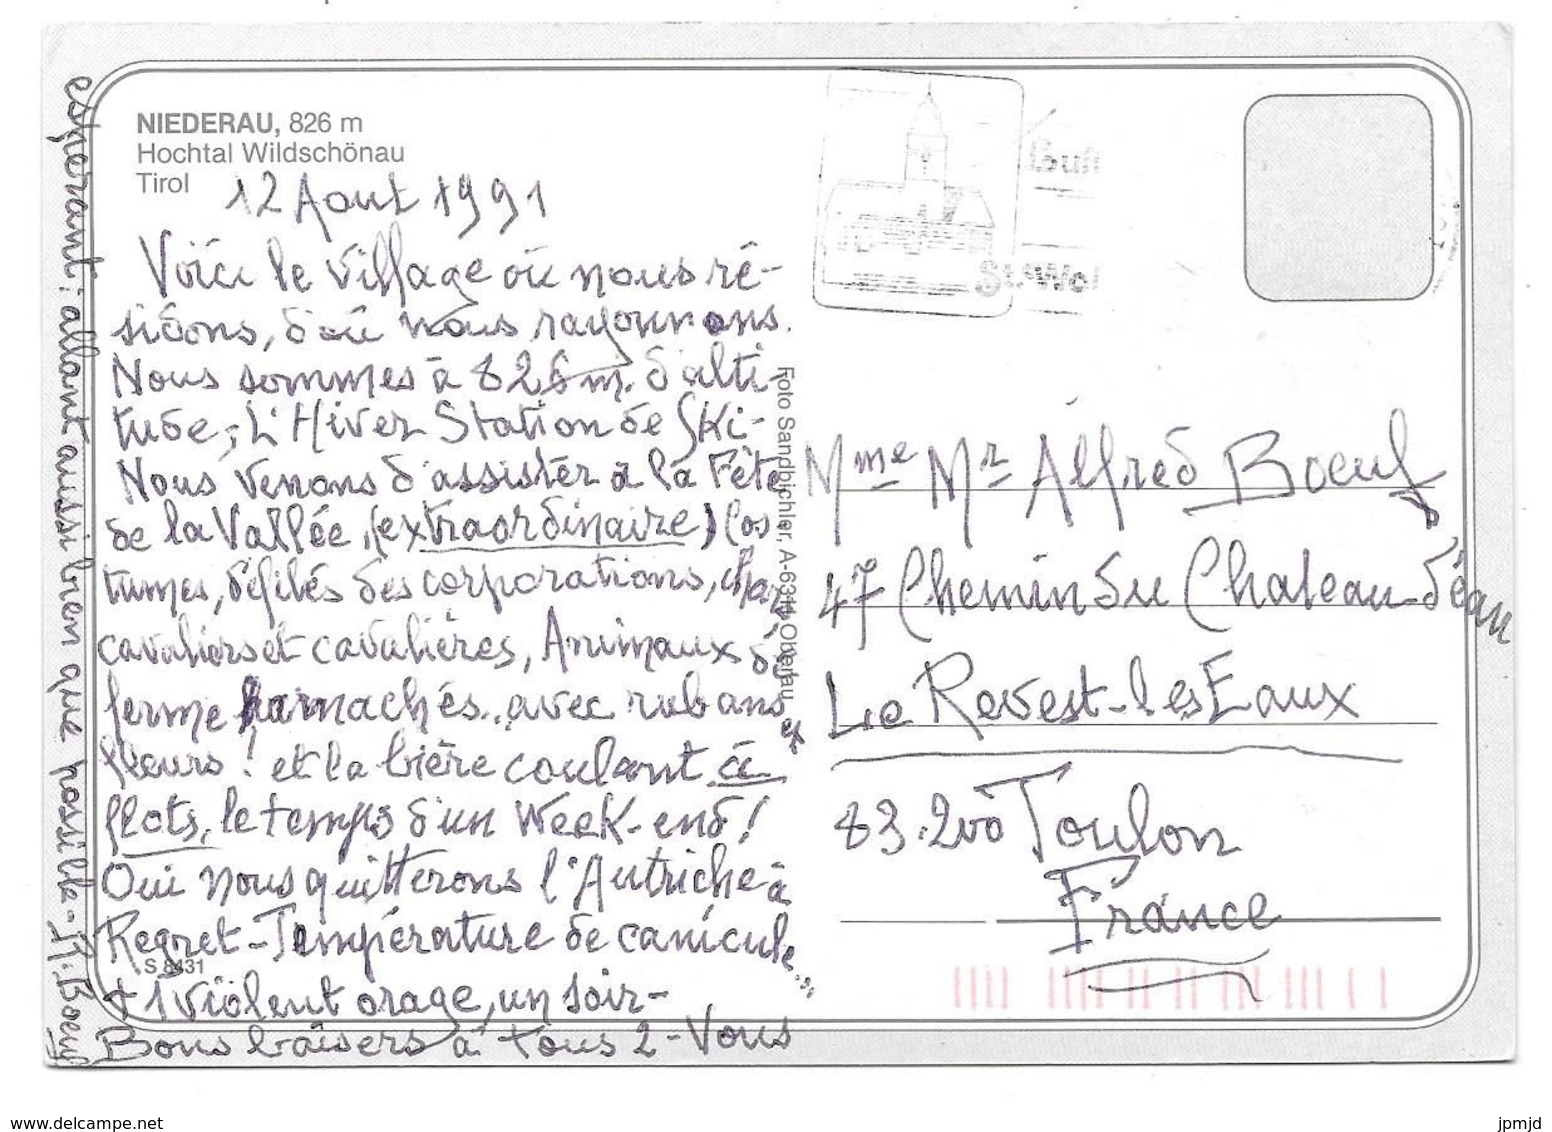 NIEDERAU, 826 m
Hochtal Wildschönau
Tirol
12 Aout 1991
Voici le village où nous ré-
sidons, d'où nous rayonnons.
Nous sommes à 826 m. d'alti-
tude, L'Hiver Station de Ski-
Nous venons d'assister à la Fête
de la Vallée, (extraordinaire) Cos
tumes, défilés des corporations, chars
cavaliers et cavalières, Animaux de
ferme harnachés.. avec rubans et
fleurs! et la bière coulant à
flots, le temps d'un Week-end!
Oui nous quitterons l'Autriche à
Regret-Température de canicule..
+ 1 violent orage, un soir-
Bons baisers à tous 2-Vous
espérant: allant aussi bien que possible- R. Boeuf
S 8431
Foto Sandbichler, A-6311 Oberau
St. Wol
Mme Mr Alfred Boeuf
47 Chemin du Chateau d'eau
Le Revest-les Eaux
83.200 Toulon
France
www.delcampe.net
jpmjd